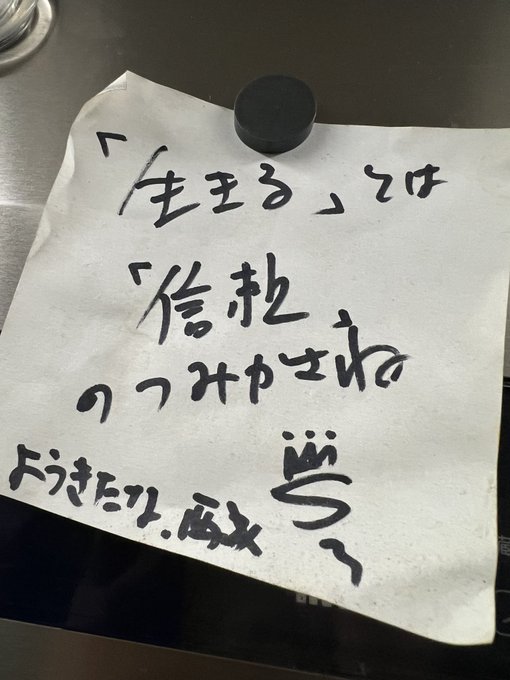 「生きる」とは
「信頼」
のつみかさね
ようきたな、西成